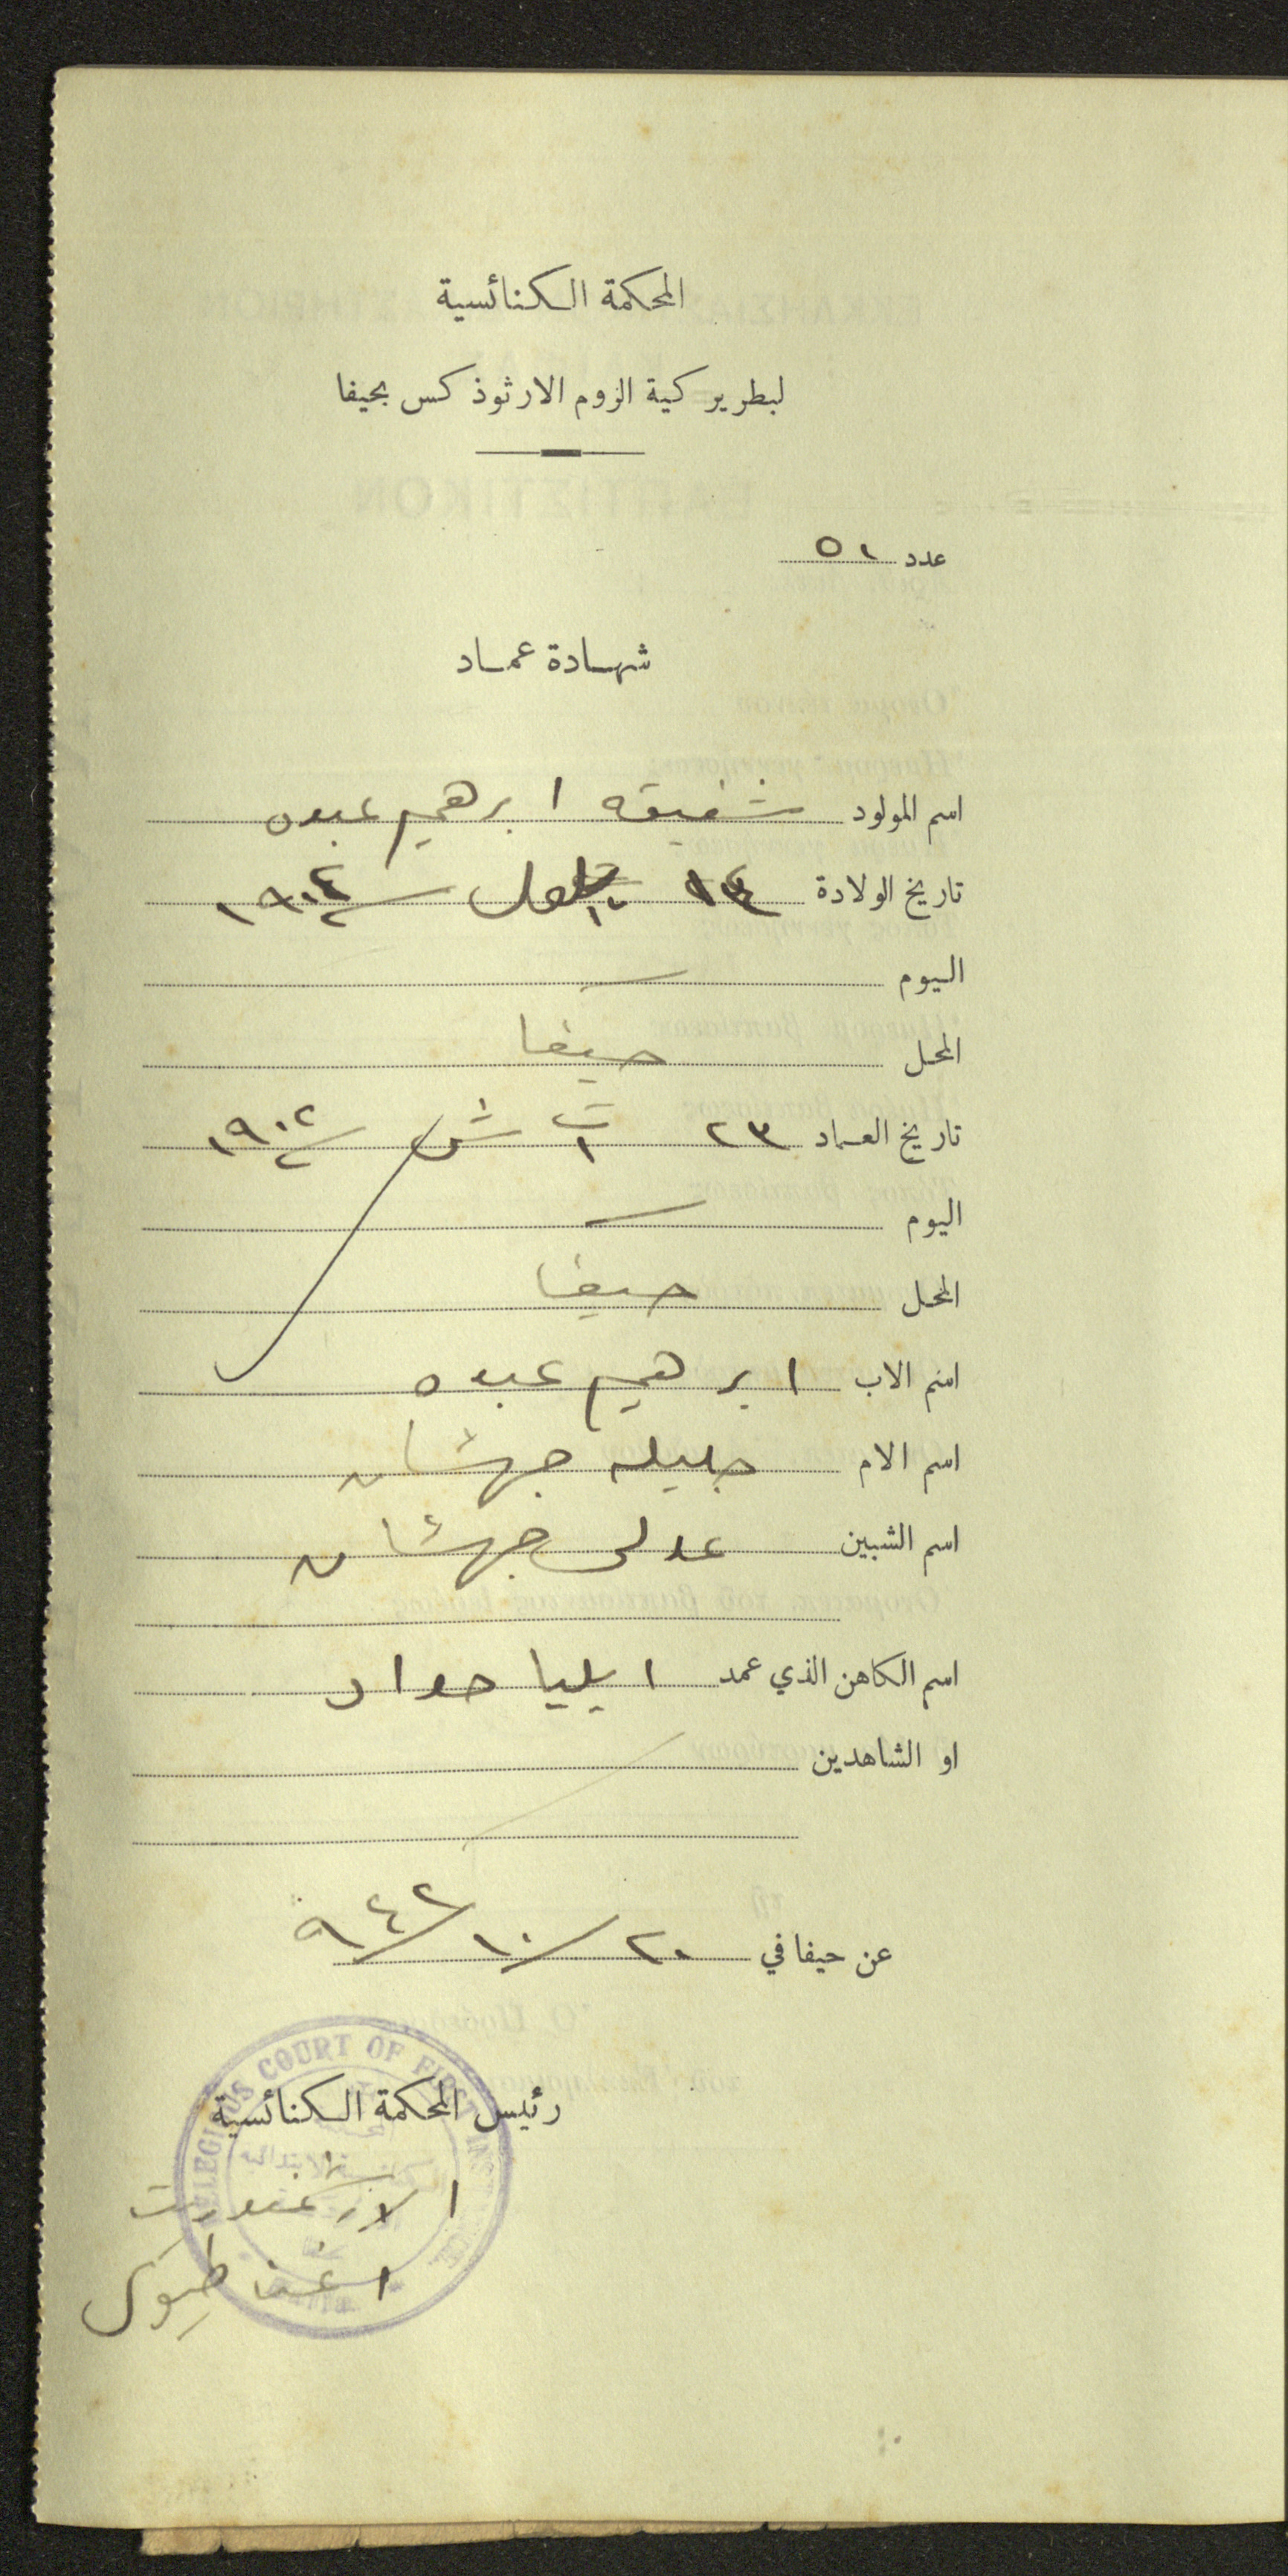 المحكمة الكنائسية
لبطريركية الروم الارثوذكس بحيفا
عدد ٥١
شهادة عماد
اسم المولود شفيقه ابرهيم عبده
تاريخ الولادة ايلول ١٩٠٢
اليوم
المحل حيفا
تاريخ العماد ٢٣ ت ١ ش ١٩٠٢
اليوم
المحل حيفا
اسم الاب ابرهيم عبده
اسم الام جليله جهشان
اسم الشبين عدلى جهشان
اسم الكاهن الذي عمد ايليا حداد
او الشاهدين
عن حيفا في ٢٠/١٠/٩٤٢
رئيس المحكمة الكنائسية
RELEGIOUS COURT OF FIRST INSTANCE